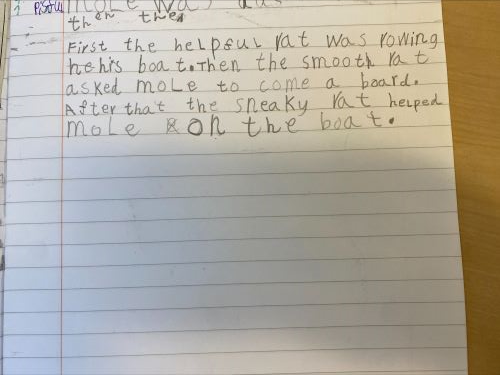 mole was
then the
First the helpful rat was rowing
hehis boat. Then the smooth rat
asked mole to come a board.
After that the sneaky rat helped
mole on the boat.